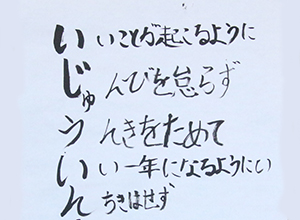 いいことが起こるように
じゅんびを怠らず
うんきをためて
いい一年になるようにい
んちきはせず